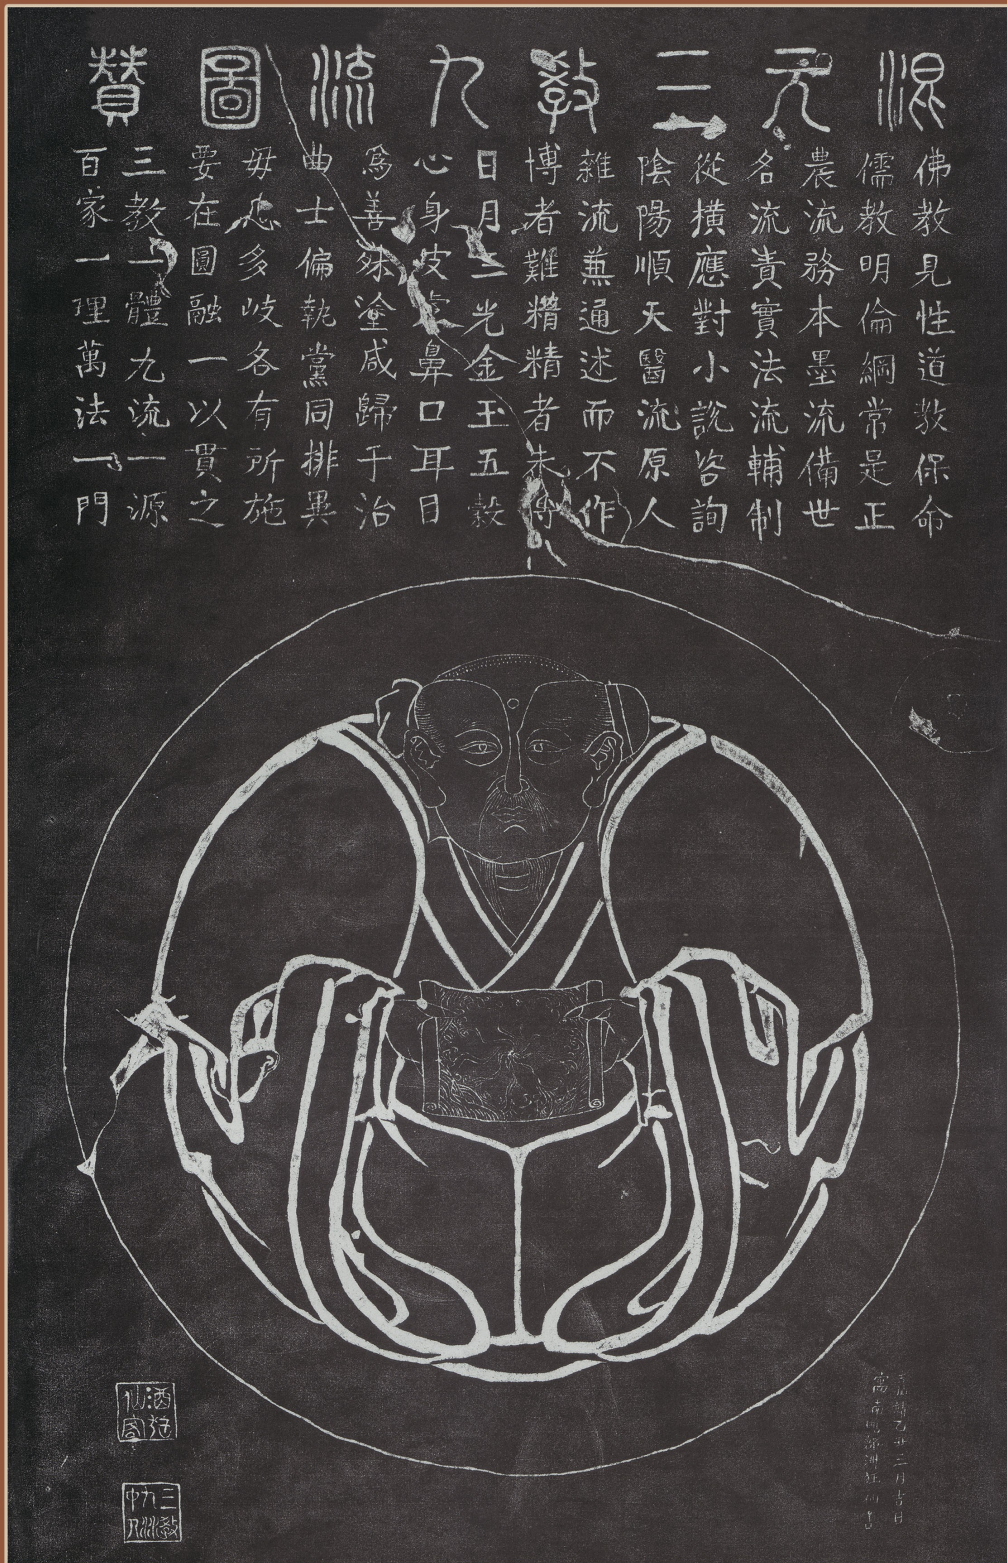 混元三教九流圖贊
佛教見性道教保命
儒教明倫綱常是正
農流務本墨流備世
名流責實法流輔制
從橫應對小說咨詢
陰陽順天醫流原人
雜流兼通述而不作
博者難精精者未博
日月三光金玉五穀
心身皮膚鼻口耳目
為善殊塗咸歸于治
曲士偏執黨同排異
毋患多岐各有所施
要在圓融一以貫之
三教一體九流一源
百家一理萬法一門
嘉靖乙丑三月吉日
酒狂仙客
三教九流中人